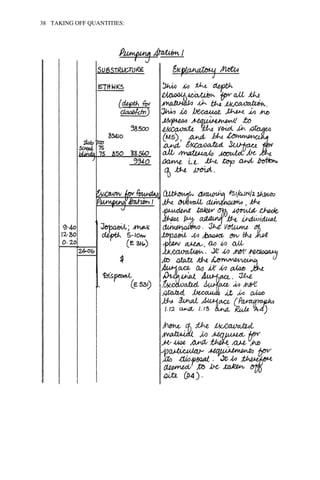 38 TAKING OFF QUANTITIES:
Pumping Station 1
SUBSTRUCTURE
Explanatory Notes
ETHWKS
This is the depth
classification for all the
(depth for
materials in the excavation.
classifctn)
This is because there is no
express requirement to
38500
excavate the void in stages
(M5), and the Commencing
and Excavated Surface for
slab 700
screed 75
all materials would be the
blinding 75 850
same i.e. the top and bottom
9940
of the void.
Excavn for foundns
Although drawing shows
Pumping Station 1
the overall dimensions, the
prudent taker off should check
these by adding the individual
9.40
Topsoil; max
dimensions. The volume of
12.80
depth 5-10m
topsoil is based on the net
0.20
(E 316)
plan area, as is all
excavation. It is not necessary
24.06
to state the Commencing
&
Surface as it is also the
Original Surface. The
Disposal
Excavated Surface is not
(E 531)
stated because it is also
the Final Surface (Paragraphs
1.12 and 1.13 and Rule A4)
None of the excavated
material is required for
re-use and there are no
particular requirements for
its disposal. It is therefore
deemed to be taken off
site (D4).